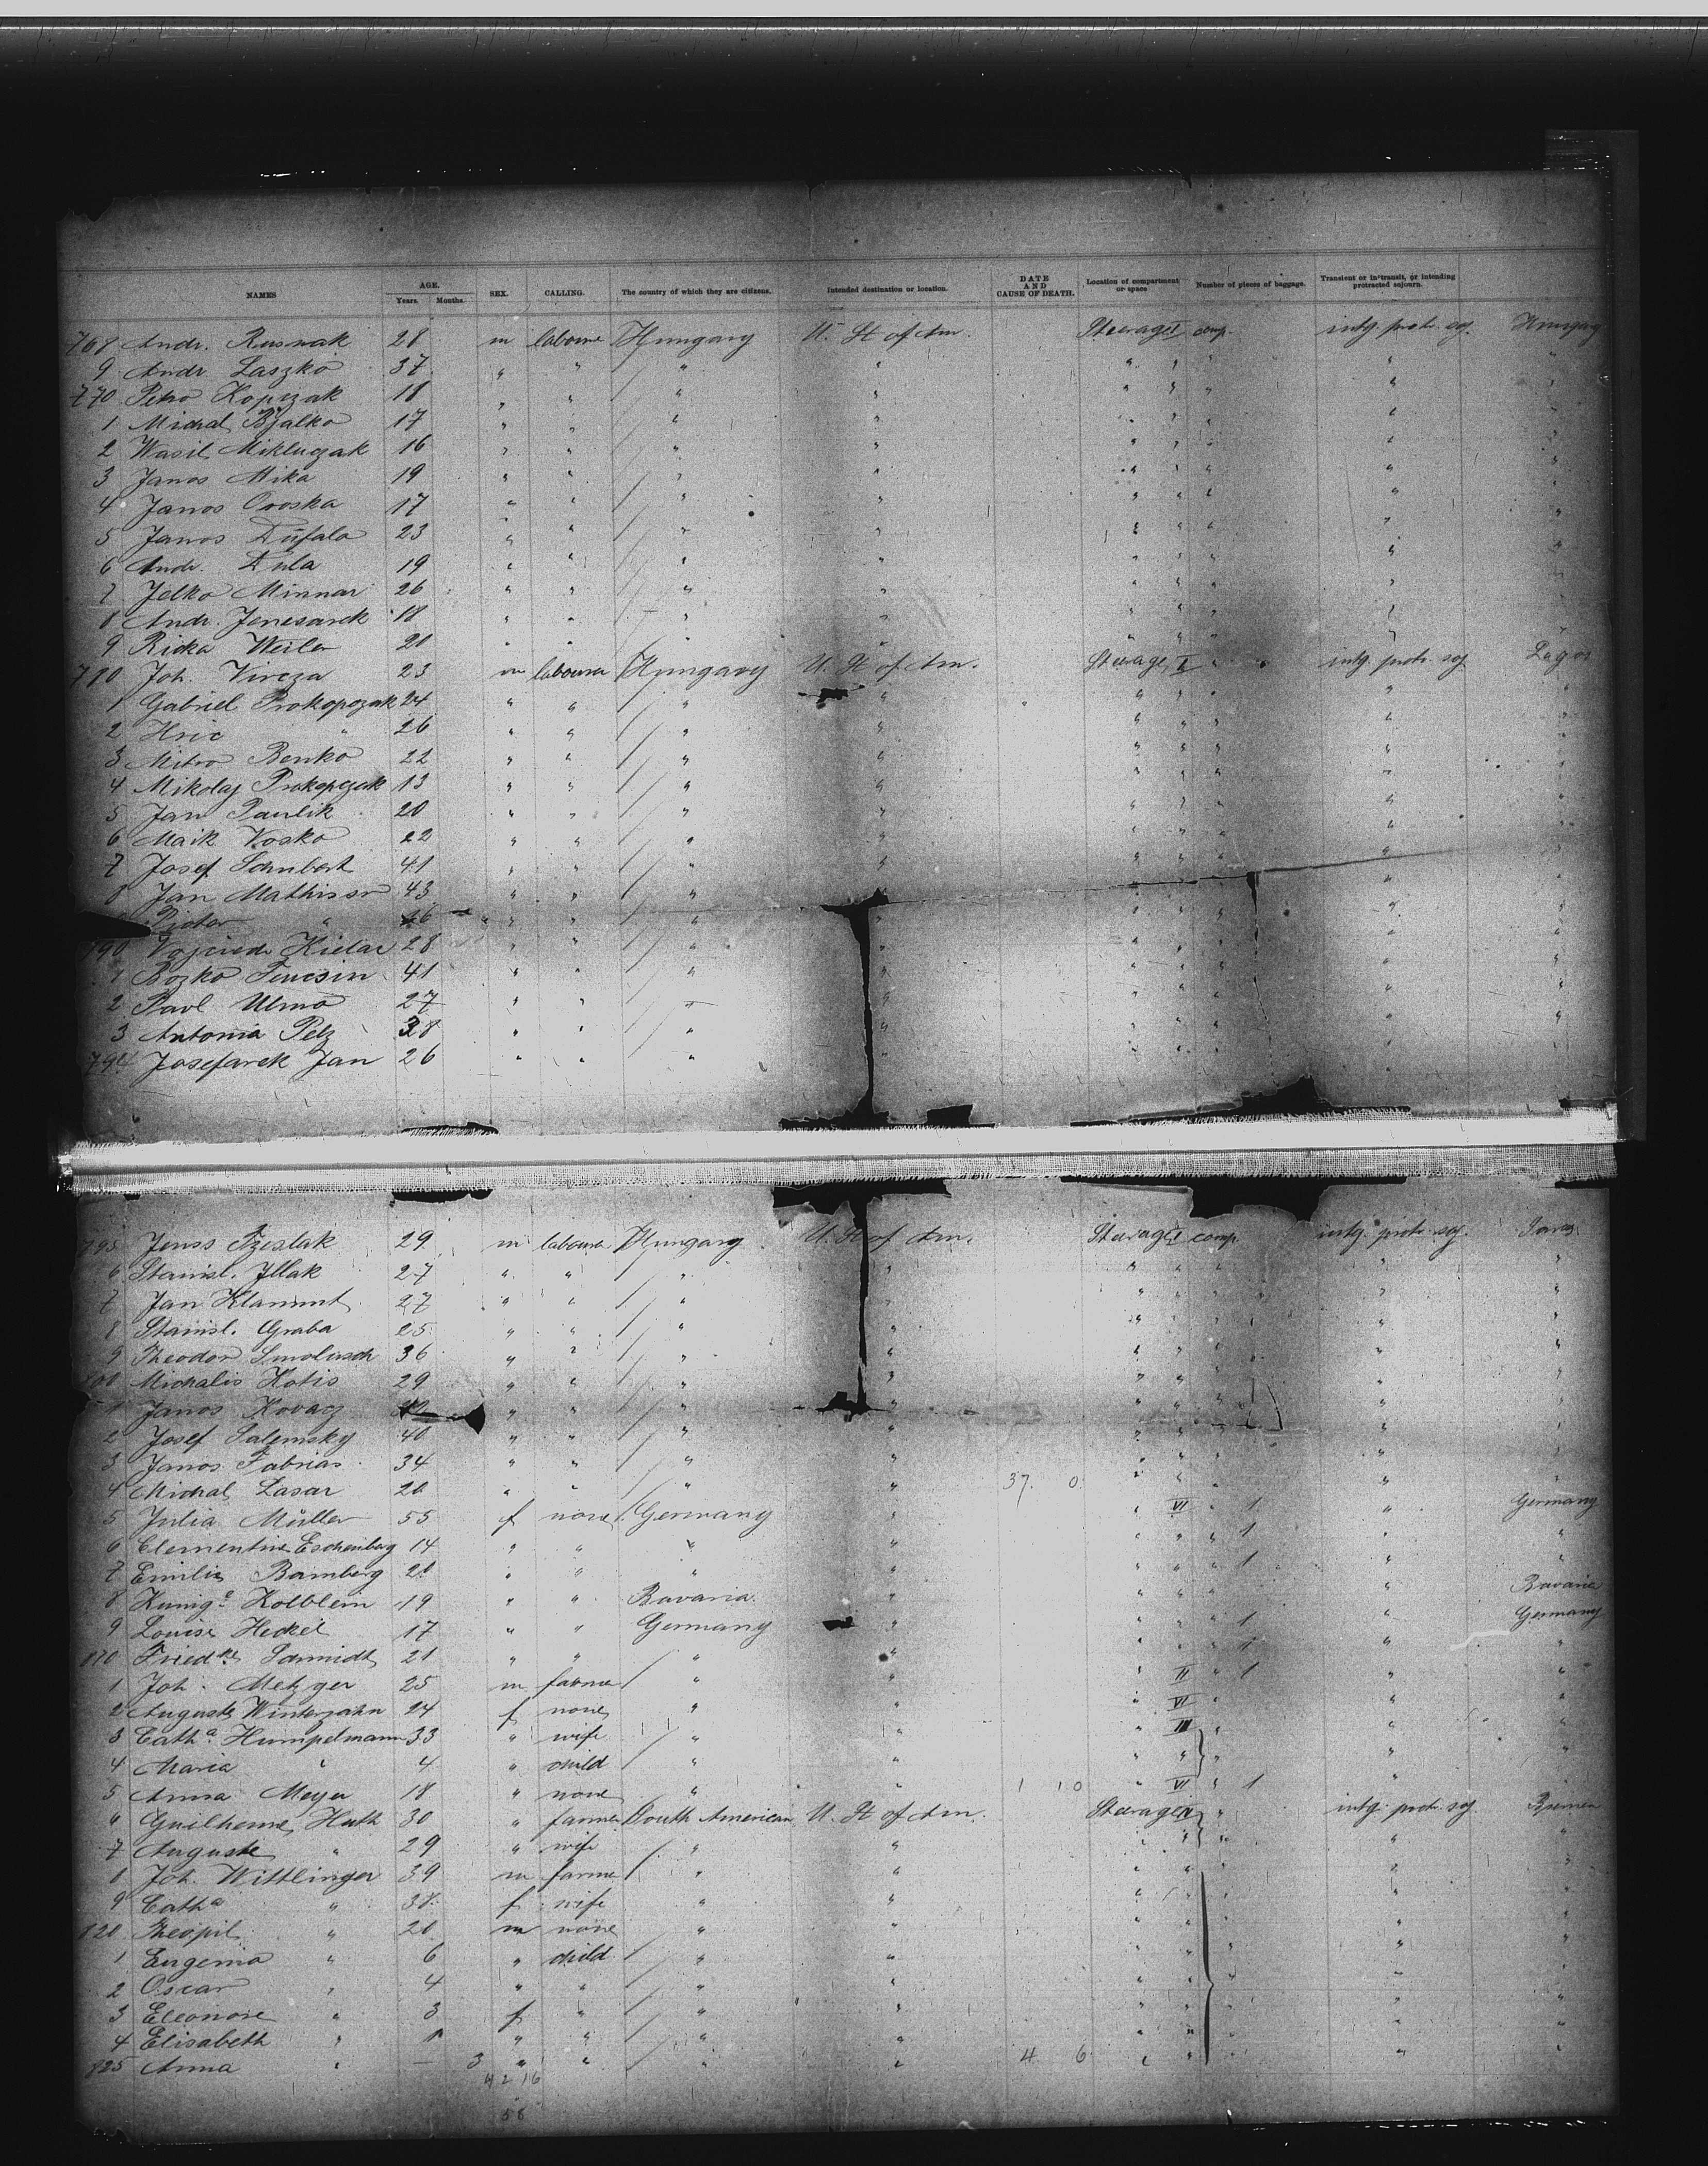 NAMES AGE. Years. Months. SEX. CALLING. The country of which they are citizens. Intended destination or location. DATE AND CAUSE OF DEATH. Location of compartment or space Number of pieces of baggage. Transient or in transit, or intending protracted sojourn.
768 Andr. Rusnak 28 m laboure Hungary U. St of Am. Steerage I comp. intg. protr. soj. Hungary
9 Andr. Laszko 37 " " " " " " " "
770 Petro Kopczak 18 " " " " " " " "
1 Michal Bjalko 17 " " " " " " " "
2 Wasil Mikluczak 16 " " " " " " " "
3 Janos Mika 19 " " " " " " " "
4 Janos Oroska 17 " " " " " " " "
5 Janos Dufala 23 " " " " " " " "
6 Andr. Dula 19 " " " " " " " "
7 Jelko Minnai 26 " " " " " " "
8 Andr. Jenesarek 18 " " " " " " "
9 Ricka Weiler 20 " " " " " "
780 Joh. Vircza 23 m laboure Hungary U. St of Am. Steerage I " " intg. protr. soj.
1 Gabriel Prokopczak 24 " " " " " " " "
2 Hric " 26 " " " " " " "
3 Mitro Benko 22 " " " " " " "
4 Mikolaj Prokopczak 13 " " " " " " "
5 Jan Paulik 20 " " " " " " "
6 Maik Vosko 22 " " " " " " "
7 Josef Schubert 41 " " " " " " "
8 Jan Mathisson 43 " " " " " " "
Piotor " " " " " " "
790 Vojciech Kielar 28 " " " " " " "
1 Bozko Teucsin 41 " " " " " " "
2 Pavl Ulmo 27 " " " " " " "
3 Antonia Pelz 38 " " " " " " "
794 Josefarek Jan 26 " " " " " " "
795 Jenss Szeslak 29 m laboure Hungary U. St of Am. Steerage I comp. intg. protr. soj.
6 Stanisl. Illak 27 " " " " " " "
7 Jan Klammt 27 " " " " " " "
8 Stanisl. Graba 25 " " " " " " "
9 Theodor Smoliasch 36 " " " " " " "
800 Michalis Kotis 29 " " " " " " "
1 Janos Kovacz " " " " " " "
2 Josef Salemsky 40 " " " " " " "
3 Janos Fabrias 34 " " " " " " "
4 Michal Lasar 20 " " " " 37. 0 " " " "
5 Julia Müller 55 f none Germany " " VI " 1 " Germany
6 Clementine Eschenberg 14 " " " " " " " 1 " "
7 Emilie Bamberg 20 " " " " " " " 1 " "
8 Kunig.e Kolblein 19 " " Bavaria " " " " " Bavaria
9 Louise Heckel 17 " " Germany " " " " 1 " Germany
810 Friedke Schmidt 21 " " " " " " " 1 " "
1 Joh. Metzger 25 m farmer " " " II " 1 " "
2 Auguste Winterzahn 24 f none " " " VI " " "
3 Catha Humpelmann 33 " wife " " " III " " "
4 Maria " 4 " child " " " " " " "
5 Anna Meyer 18 " none " " 1 10 " VI " 1 "
6 Guilherme Huth 30 " farmer South American U. St of Am. Steerage " intg. protr. soj. Bremen
7 Auguste " 29 " wife " " " " " " "
8 Joh. Wittlinger 39 m farmer " " " " " " "
9 Catha " 38 f wife " " " " " " "
820 Theopil " 20 m none " " " " " " "
1 Eugenia " 6 " child " " " " " " "
2 Oscar " 4 " " " " " " " " "
3 Eleonore " 3 f " " " " " " " "
4 Elisabeth " 1 " " " " " " " " "
825 Anna " — 3 " " " " 4 6 " " " " "
42 16
58